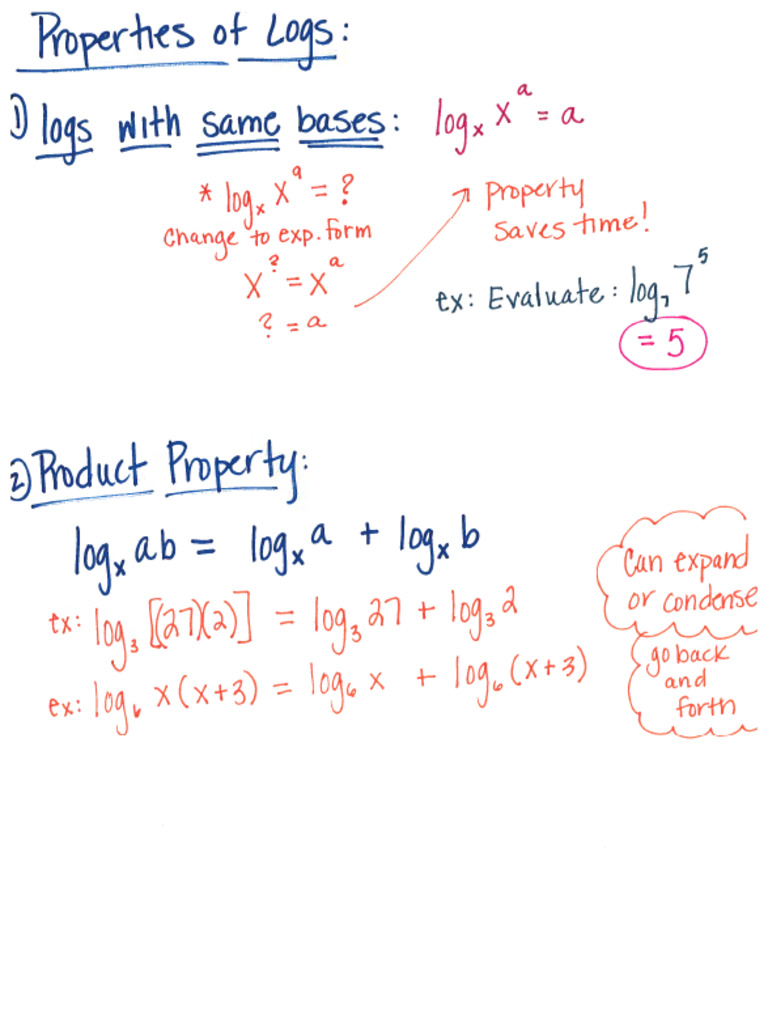 Properties of Logs:
1) logs with same bases: logₓ xᵃ = a
* logₓ xᵃ = ?
Change to exp. form
x^? = xᵃ
? = a
Property
saves time!
ex: Evaluate: log₇ 7⁵
= 5
2) Product Property:
logₓ ab = logₓ a + logₓ b
ex: log₃ [(27)(2)] = log₃ 27 + log₃ 2
ex: log₆ x(x+3) = log₆ x + log₆ (x+3)
Can expand
or condense
go back
and
forth